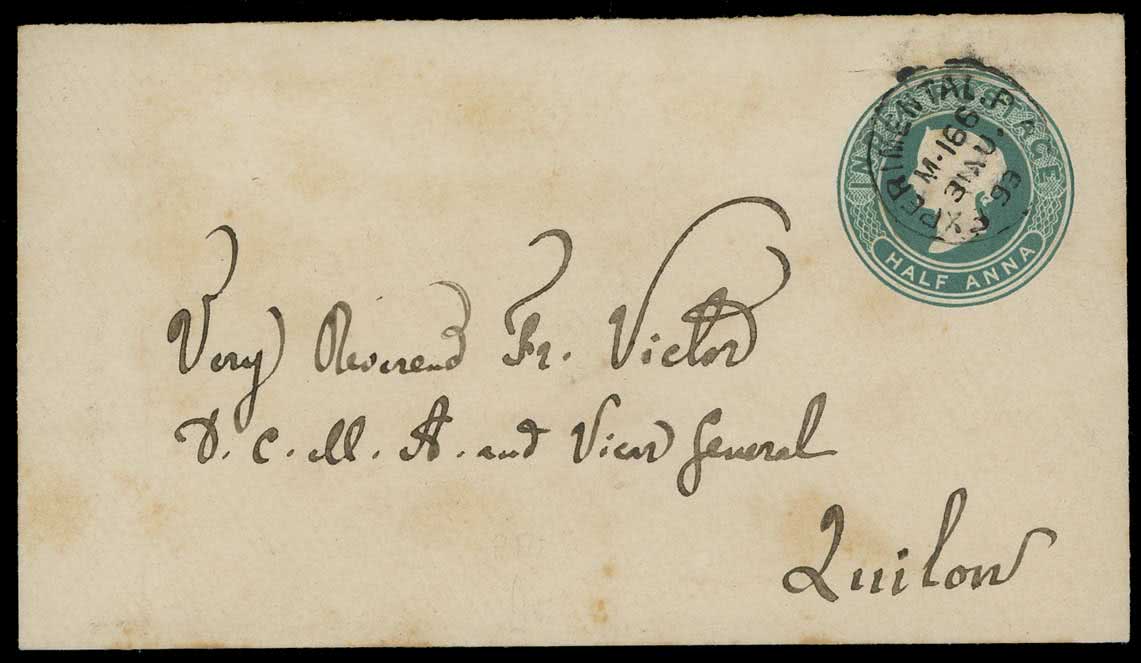 EXPERIMENTAL. P.
M-166
31 AU.
93
INDIA POSTAGE
HALF ANNA
Very Reverend Fr. Victor
D. C. M. A. and Vicar General
Quilon